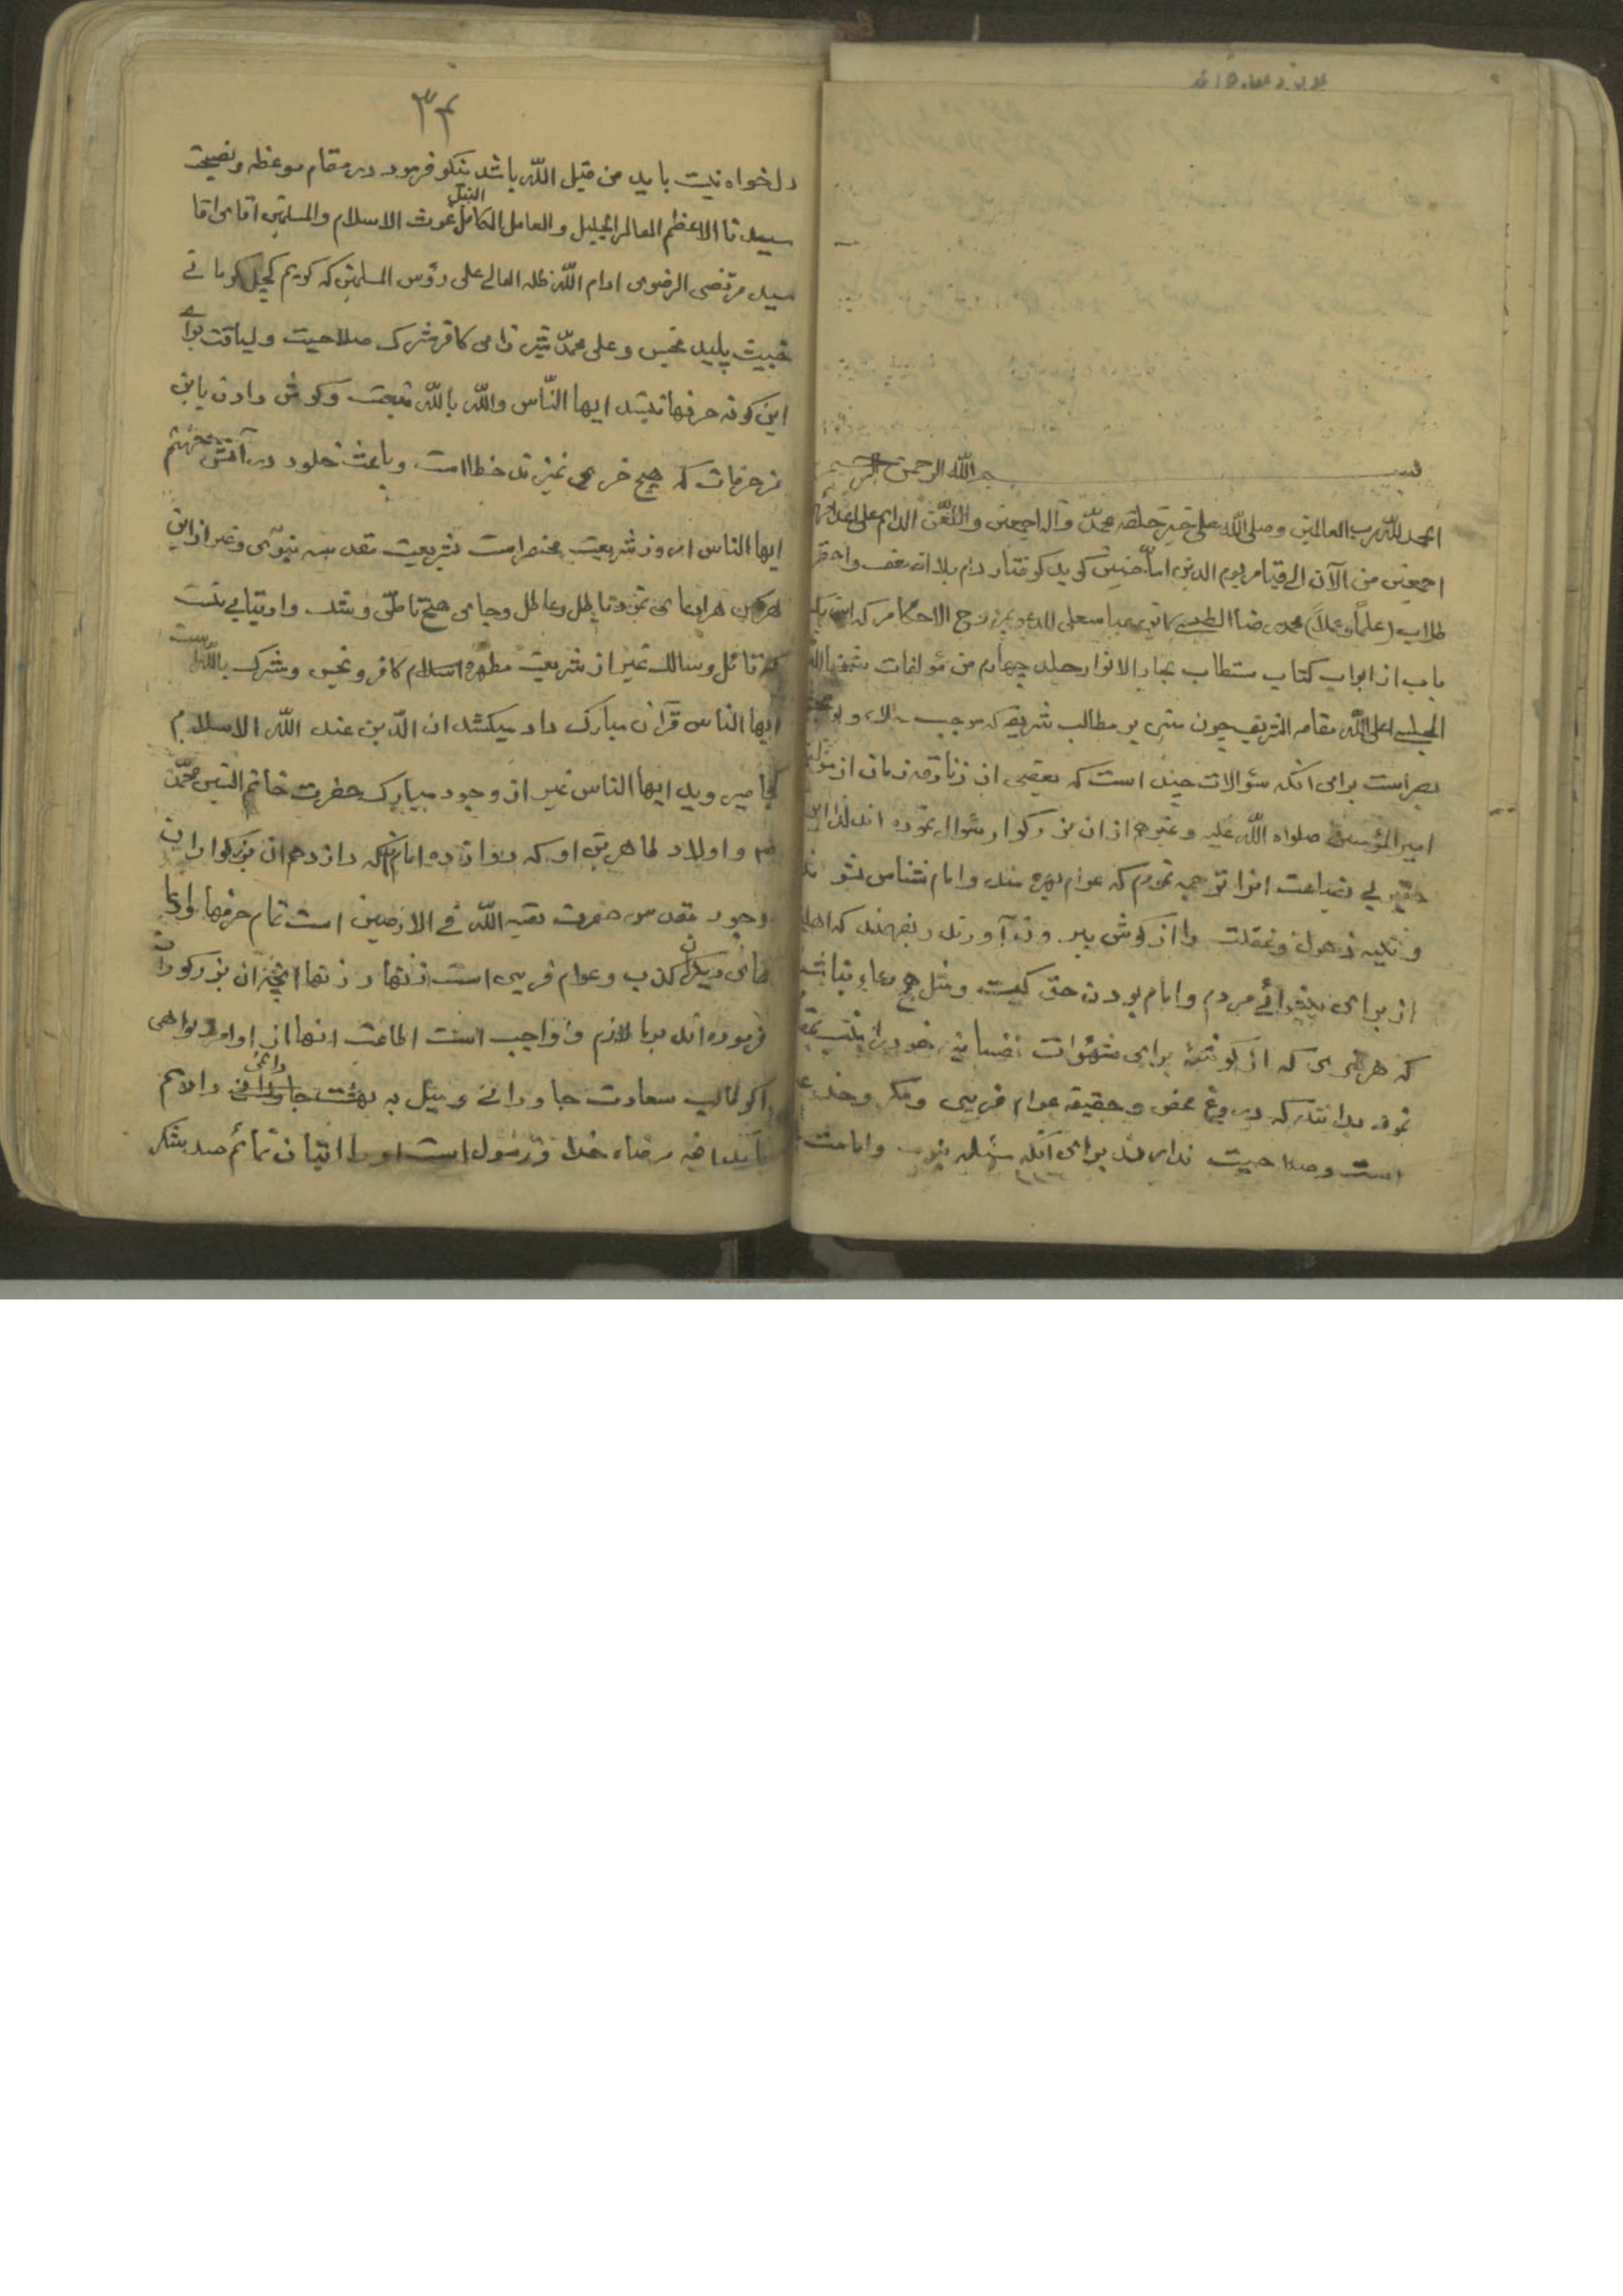 بسم الله الرحمن الرحیم
الحمد لله رب العالمین وصلی الله علی خیر خلقه محمد وآله اجمعین واللعن الدائم علی اعدائهم
اجمعین من الآن الی قیام یوم الدین اما چنین کوید کرفتار دام بلا اضعف واحقر
طلاب (علماً وعملاً) محمد رضا الطبسی الاحکام که این یک
باب از ابواب کتاب مستطاب بحار الانوار جلد چهارم من مؤلفات شیخنا
المجلسی اعلی الله مقامه الشریف چون مبنی بر مطالب شریفه که موجب
بصر است برای انکه سئوالات چند است که بعضی از زنادقه زمان از مولا
امیرالمؤمنین صلواه الله علیه وغیرهم از ان بزرکوار سئوال نموده اند لذا این
حقیر بی بضاعت انرا ترجمه نمودم که عوام بهره مند وامام شناس شوند
و پنبه ذهول وغفلت را از کوش بیرون آورند و بفهمند که اهل
از برای پیشوائی مردم وامام بودن حق کیست ومثل هر مدعا نباشد
که هر از کوشهٔ برای شهوات نفسانیه خود را
نمود بدانند که دروغ محض وحقیقه عوام فریبی ومکر وخدعه
است وصلاحیت ندارند برای انکه وامامت
۳۴
دلخواه نیست باید من قبل الله باشد نیکو فرمود در مقام موعظه ونصیحت
سیدنا الاعظم العالم الجلیل والعامل الکامل النبیل غوث الاسلام والمسلمین اقای اقا
سید مرتضی الرضوی ادام الله ظله العالی علی رؤس المسلمین که کریم کچل کرمانی
خبیث پلید نجس وعلی محمد شیرازی کافر مشرک صلاحیت ولیاقت برای
این کونه حرفها نیستند ایها الناس والله بالله تبعیت وکوش دادن باین
زخرفات که هیچ خری نمیزند خطا است وباعث خلود در آتش جهنم
ایها الناس امروز شریعت منحصر است بشریعت مقدسه نبوی وغیر از این
هرکس هر ادعای نمود باطل وعاطل وجای هیچ تامل وشک وارتیابی نیست
که قائل وسالک غیر از شریعت مطهره اسلام کافر ونجس ومشرک بالله است
ایها الناس قرآن مبارک داد میکشد ان الدین عند الله الاسلام
کجا میروید ایها الناس غیر از وجود مبارک حضرت خاتم النبیین محمد
ص واولاد طاهرین او که دوازده امام که دوازدهم ان بزرکواران
وجود مقدس حضرت بقیه الله فی الارضین است تمام حرفها وادعا
های دیکران کذب وعوام فریبی است زنهار زنهار انچه ان بزرکواران
فرموده اند برما لازم و واجب است اطاعت انها از اوامر ونواهی
اکر طالب سعادت جاودانی ومیل به بهشت جاودانی دائمی دارم
رضاء خدا ورسول است